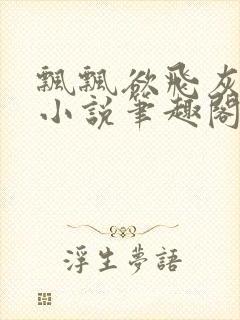 飄飄欲飛灰
小說筆趣閣
浮生夢語